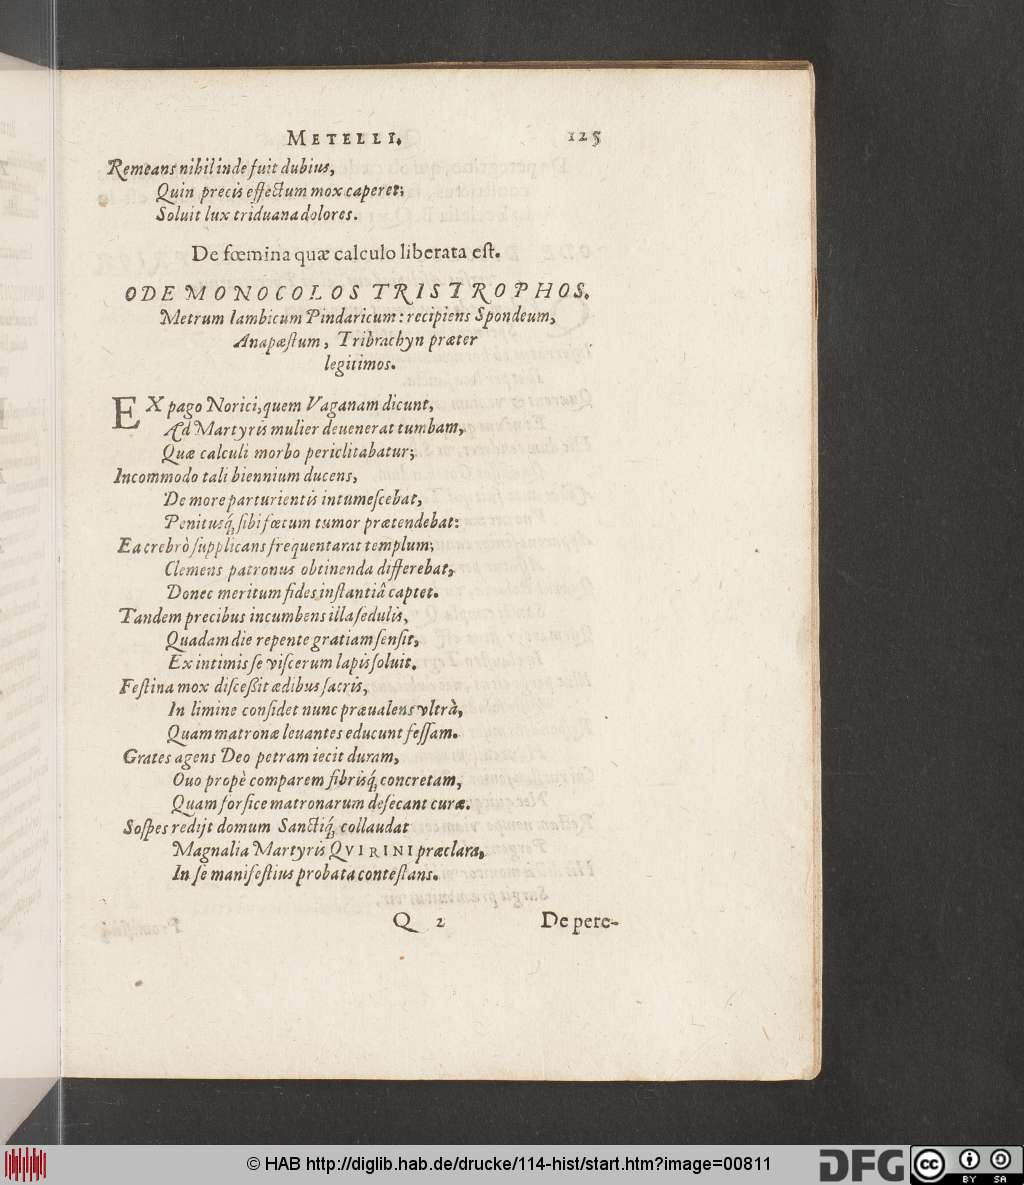 METELLI. 125
Remeans nihil inde fuit dubius,
Quin precis effectum mox caperet;
Soluit lux triduana dolores.
De fœmina quæ calculo liberata est.
ODE MONOCOLOS TRISTROPHOS.
Metrum Iambicum Pindaricum: recipiens Spondeum,
Anapæstum, Tribrachyn præter
legitimos.
EX pago Norici, quem Vaganam dicunt,
Ad Martyris mulier deuenerat tumbam,
Quæ calculi morbo periclitabatur;
Incommodo tali biennium ducens,
De more parturientis intumeſcebat,
Penitusq́; ſibi fœtum tumor prætendebat:
Ea crebrò ſupplicans frequentarat templum;
Clemens patronus obtinenda differebat,
Donec meritum fides inſtantiâ captet.
Tandem precibus incumbens illa ſedulis,
Quadam die repente gratiam ſenſit,
Ex intimis ſe viſcerum lapis ſoluit.
Feſtina mox diſceſſit ædibus ſacris,
In limine conſidet nunc præualens vltrà,
Quam matronæ leuantes educunt feſſam.
Grates agens Deo petram iecit duram,
Ouo propè comparem fibrisq́; concretam,
Quam forfice matronarum deſecant curæ.
Soſpes redijt domum Sanctiq́; collaudat
Magnalia Martyris QVIRINI præclara,
In ſe manifeſtius probata conteſtans.
Q 2 De pere-
© HAB http://diglib.hab.de/drucke/114-hist/start.htm?image=00811
DFG cc BY SA